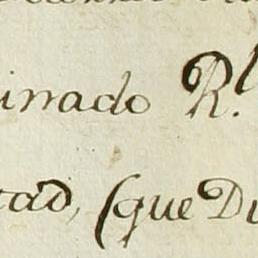 inado R.l
tad, (que Di